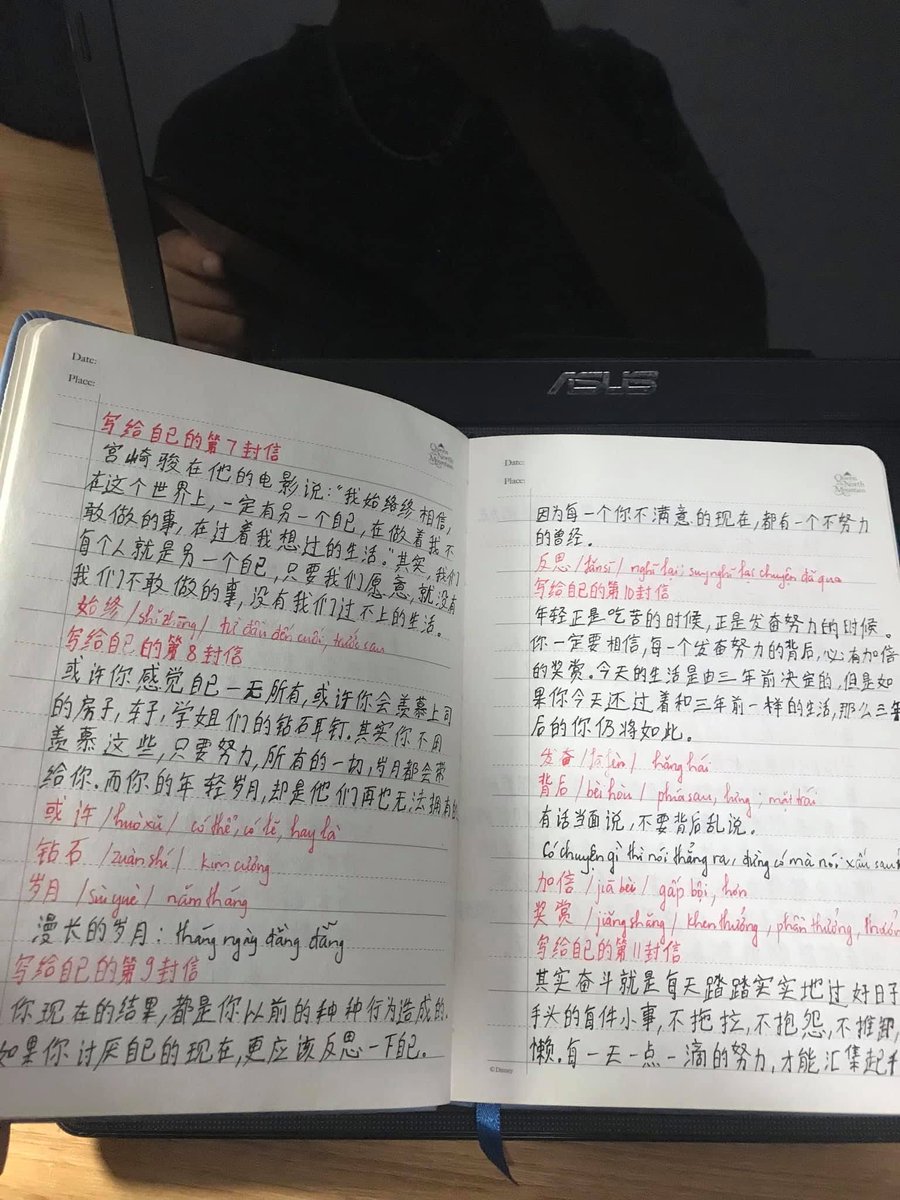 ASUS
Date:
Place:
Queen
North
Mountain
写给自己的第7封信
宫崎骏在他的电影说:"我始络终相信,
在这个世界上,一定有另一个自己,在做着我不
敢做的事,在过着我想过的生活。"其实,我们
每个人就是另一个自己,只要我们愿意,就没有
我们不敢做的事,没有我们过不上的生活。
始终 /shǐ zhōng/ từ đầu đến cuối, trước sau
写给自己的第8封信
或许你感觉自己一无所有,或许你会羡慕上司
的房子,车子,学姐们的钻石耳钉。其实你不用
羡慕这些,只要努力,所有的一切,岁月都会带
给你.而你的年轻岁月,却是他们再也无法拥有的
或许 /huò xǔ/ có thể, có lẽ, hay là
钻石 /zuàn shí/ kim cương
岁月 /suì yuè/ năm tháng
漫长的岁月: tháng ngày đằng đẵng
写给自己的第9封信
你现在的结果,都是你以前的种种行为造成的.
如果你讨厌自己的现在,更应该反思一下自己。
Date:
Place:
Queen
North
Mountain
因为每一个你不满意的现在,都有一个不努力
的曾经。
反思 /fǎn sī/ nghĩ lại; suy nghĩ lại chuyện đã qua
写给自己的第10封信
年轻正是吃苦的时候,正是发奋努力的时候。
你一定要相信,每一个发奋努力的背后,必有加倍
的奖赏.今天的生活是由三年前决定的,但是如
果你今天还过着和三年前一样的生活,那么三年
后的你仍将如此。
发奋 /fā fèn/ hăng hái
背后 /bèi hòu/ phía sau, lưng; mặt trái
有话当面说,不要背后乱说。
Có chuyện gì thì nói thẳng ra, đừng có mà nói xấu sau
加倍 /jiā bèi/ gấp bội, hơn
奖赏 /jiǎng shǎng/ khen thưởng, phần thưởng,
写给自己的第11封信
其实奋斗就是每天踏踏实实地过好日子
手头的每件小事,不拖拉,不抱怨,不推卸,
懒.每一天一点一滴的努力,才能汇集起
©Disney